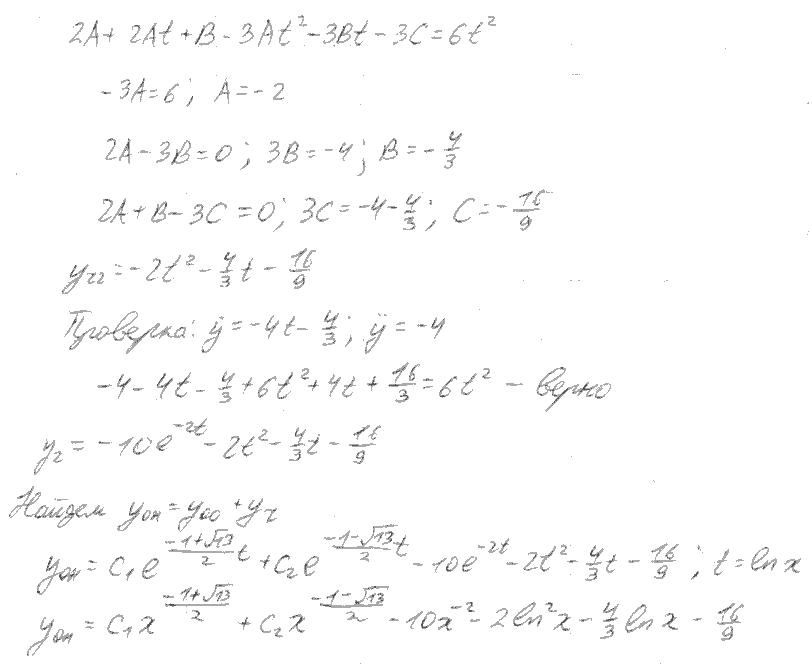 2A + 2At + B - 3At² - 3Bt - 3C = 6t²
-3A = 6; A = -2
2A - 3B = 0; 3B = -4; B = -4/3
2A + B - 3C = 0; 3C = -4 - 4/3; C = -16/9
yч2 = -2t² - 4/3 t - 16/9
Проверка: ẏ = -4t - 4/3; ÿ = -4
-4 - 4t - 4/3 + 6t² + 4t + 16/3 = 6t² - верно
yч = -10e^(-2t) - 2t² - 4/3 t - 16/9
Найдем yон = yоо + yч
yон = C₁e^((-1+√13)/2 t) + C₂e^((-1-√13)/2 t) - 10e^(-2t) - 2t² - 4/3 t - 16/9; t = ln x
yон = C₁x^((-1+√13)/2) + C₂x^((-1-√13)/2) - 10x^(-2) - 2ln²x - 4/3 ln x - 16/9